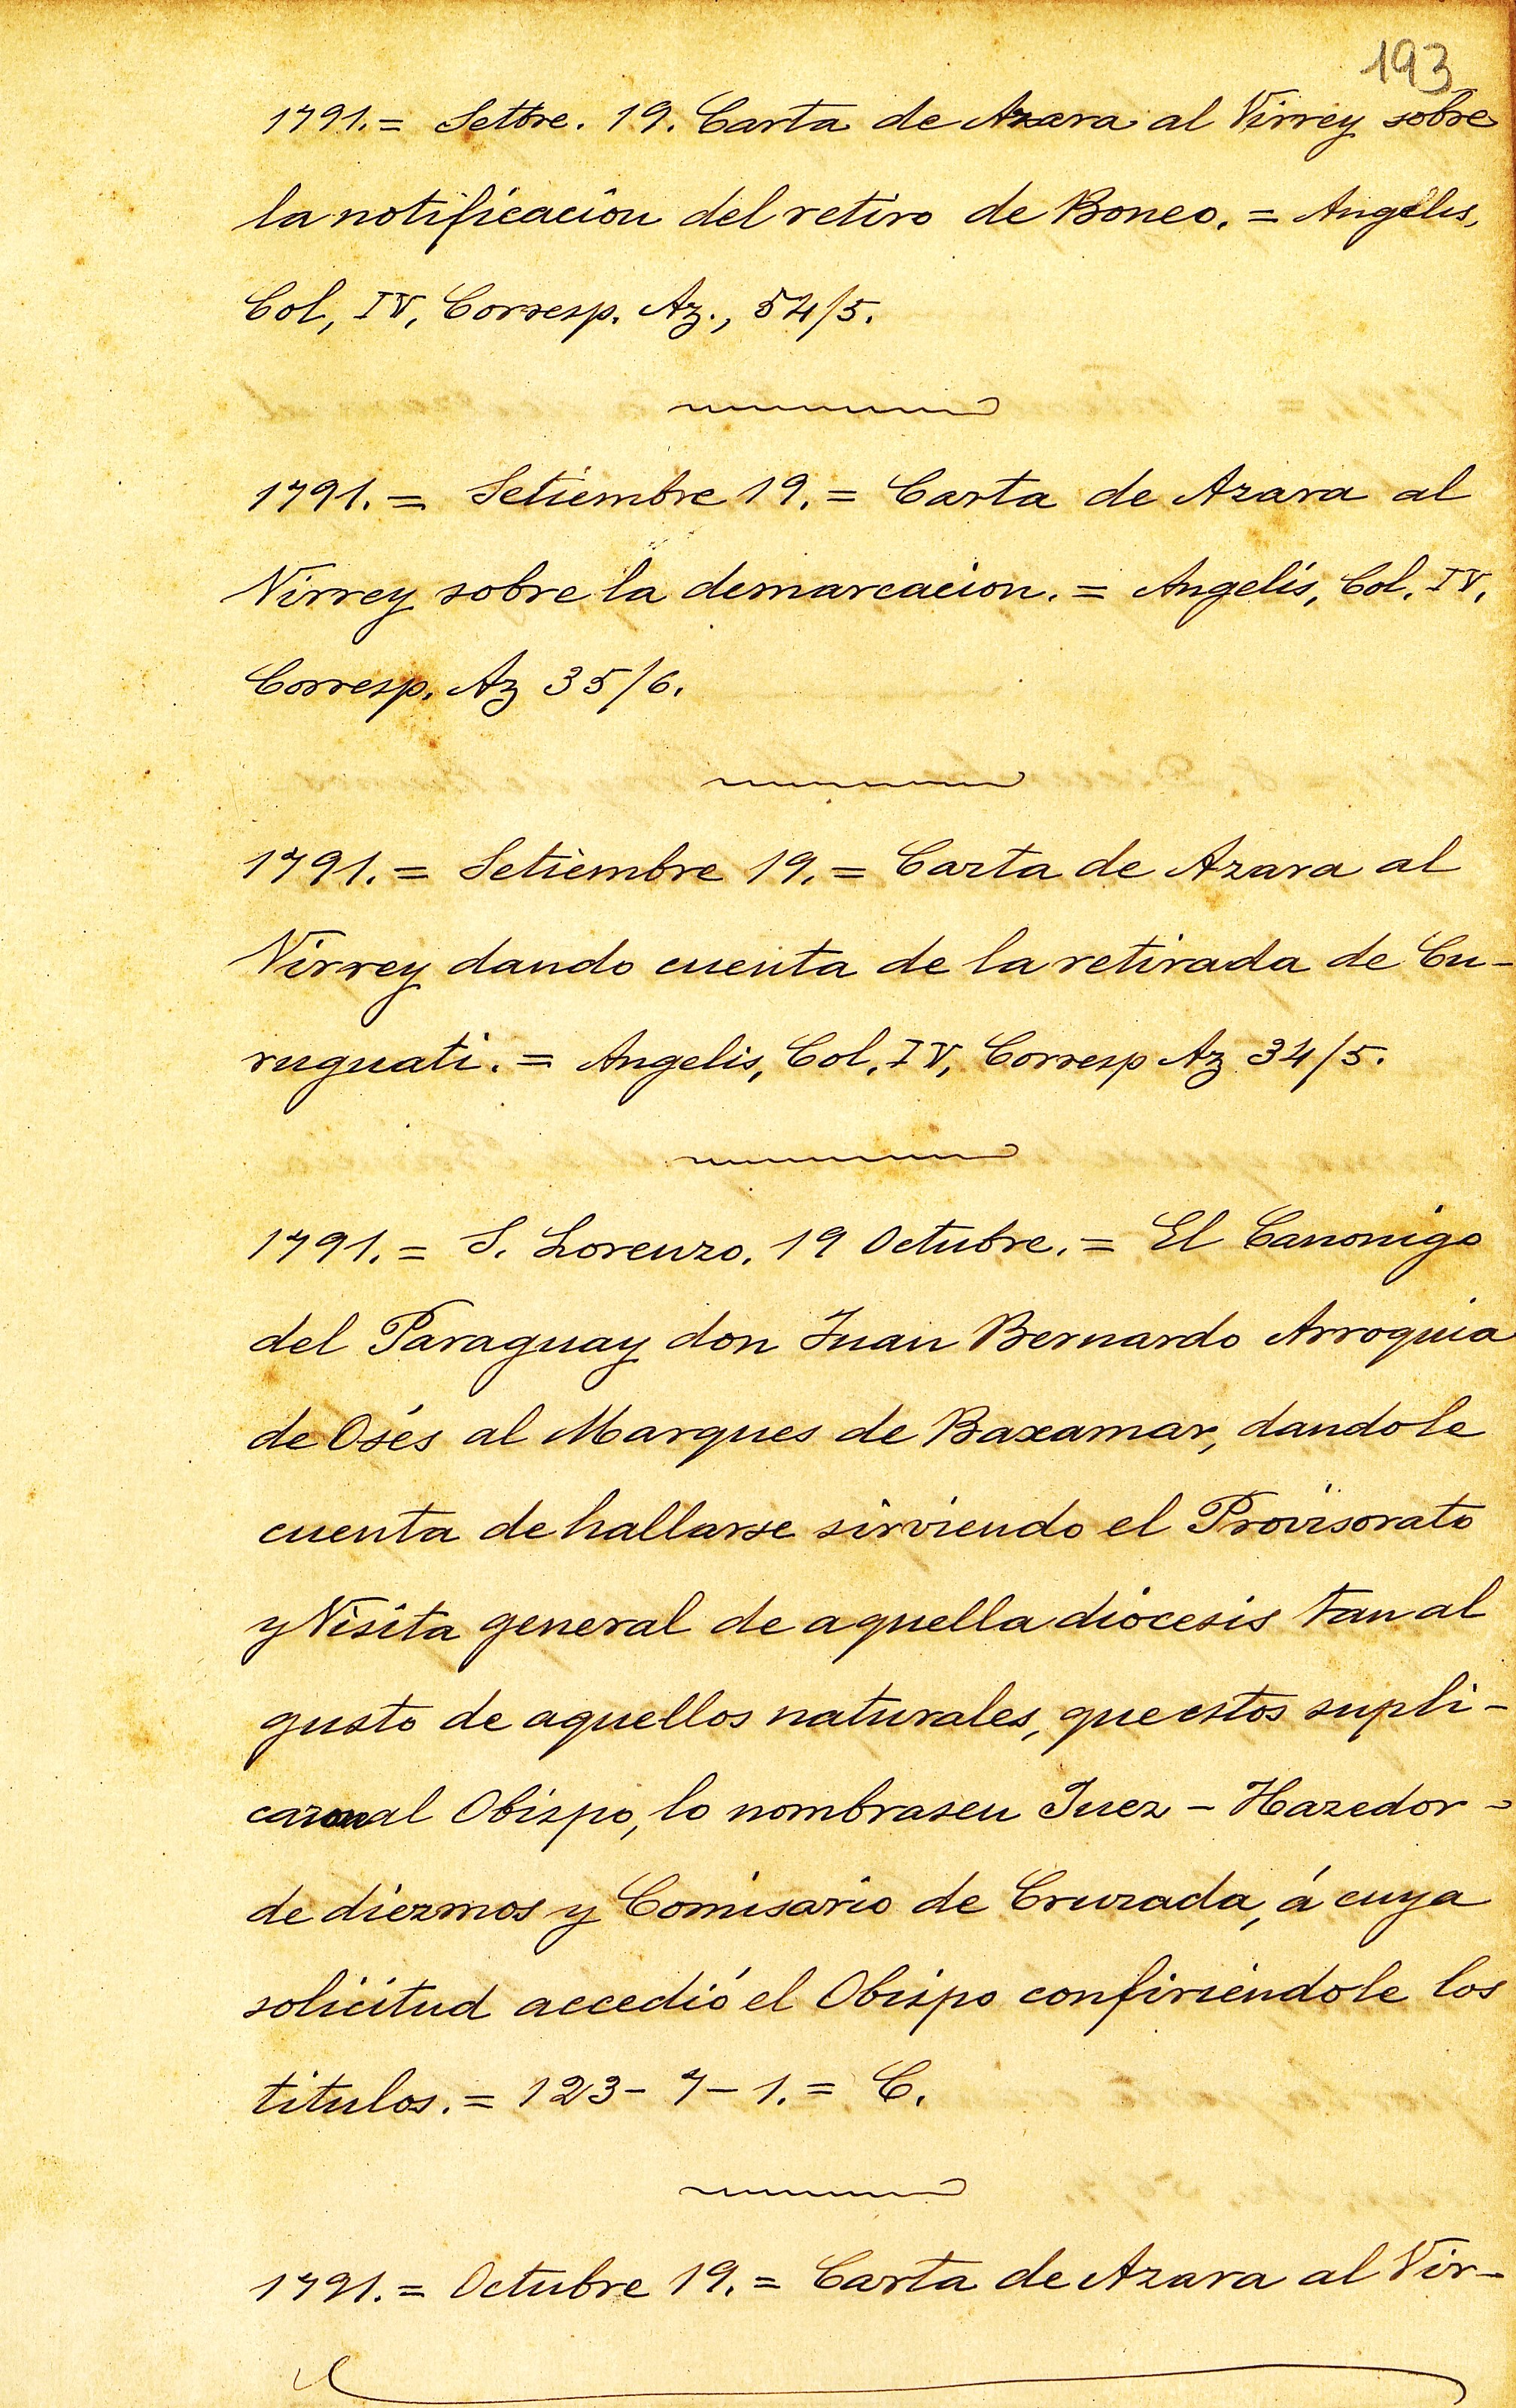 193
1791.= Setbre. 19. Carta de Azara al Virrey sobre
la notificacion del retiro de Boneo. = Angelis,
Col, IV, Corresp. Az., 54/5.
1791. = Setiembre 19. = Carta de Azara al
Virrey sobre la demarcacion. = Angelis, Col. IV,
Corresp. Az 35/6.
1791. = Setiembre 19. = Carta de Azara al
Virrey dando cuenta de la retirada de Cu-
ruguati. = Angelis, Col. IV, Corresp Az 34/5.
1791. = S. Lorenzo. 19 Octubre. = El Canonigo
del Paraguay don Juan Bernardo Arroquia
de Osés al Marques de Baxamar, dandole
cuenta de hallarse sirviendo el Provisorato
y Visita general de aquella diocesis tan al
gusto de aquellos naturales, que estos supli-
caron al Obispo, lo nombrasen Juez - Hazedor -
de diezmos y Comisario de Cruzada, á cuya
solicitud accedió el Obispo confiriendole los
titulos. = 123- 7- 1. = C.
1791. = Octubre 19. = Carta de Azara al Vir-